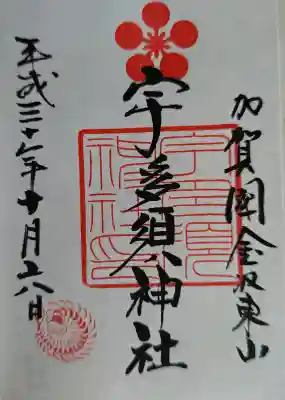 加賀國金沢東山
宇多須神社
平成三十年十月二八日
宇多須
神社印